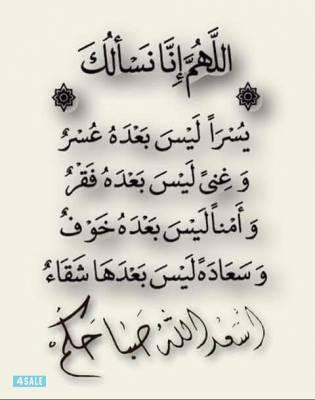 اللَّهُمَّ إِنَّا نَسْأَلُكَ
يُسْرَاً لَيْسَ بَعْدَهُ عُسْرٌ
وَ غِنىً لَيْسَ بَعْدَهُ فَقْرٌ
وَ أَمْناً لَيْسَ بَعْدَهُ خَوْفٌ
وَ سَعَادَةً لَيْسَ بَعْدَهَا شَقَاءٌ
اسْعَد اللّٰهُ صَبَاحَكُم
4SALE